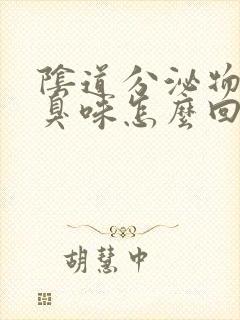 陰道分泌物
臭味怎麼回
胡慧中